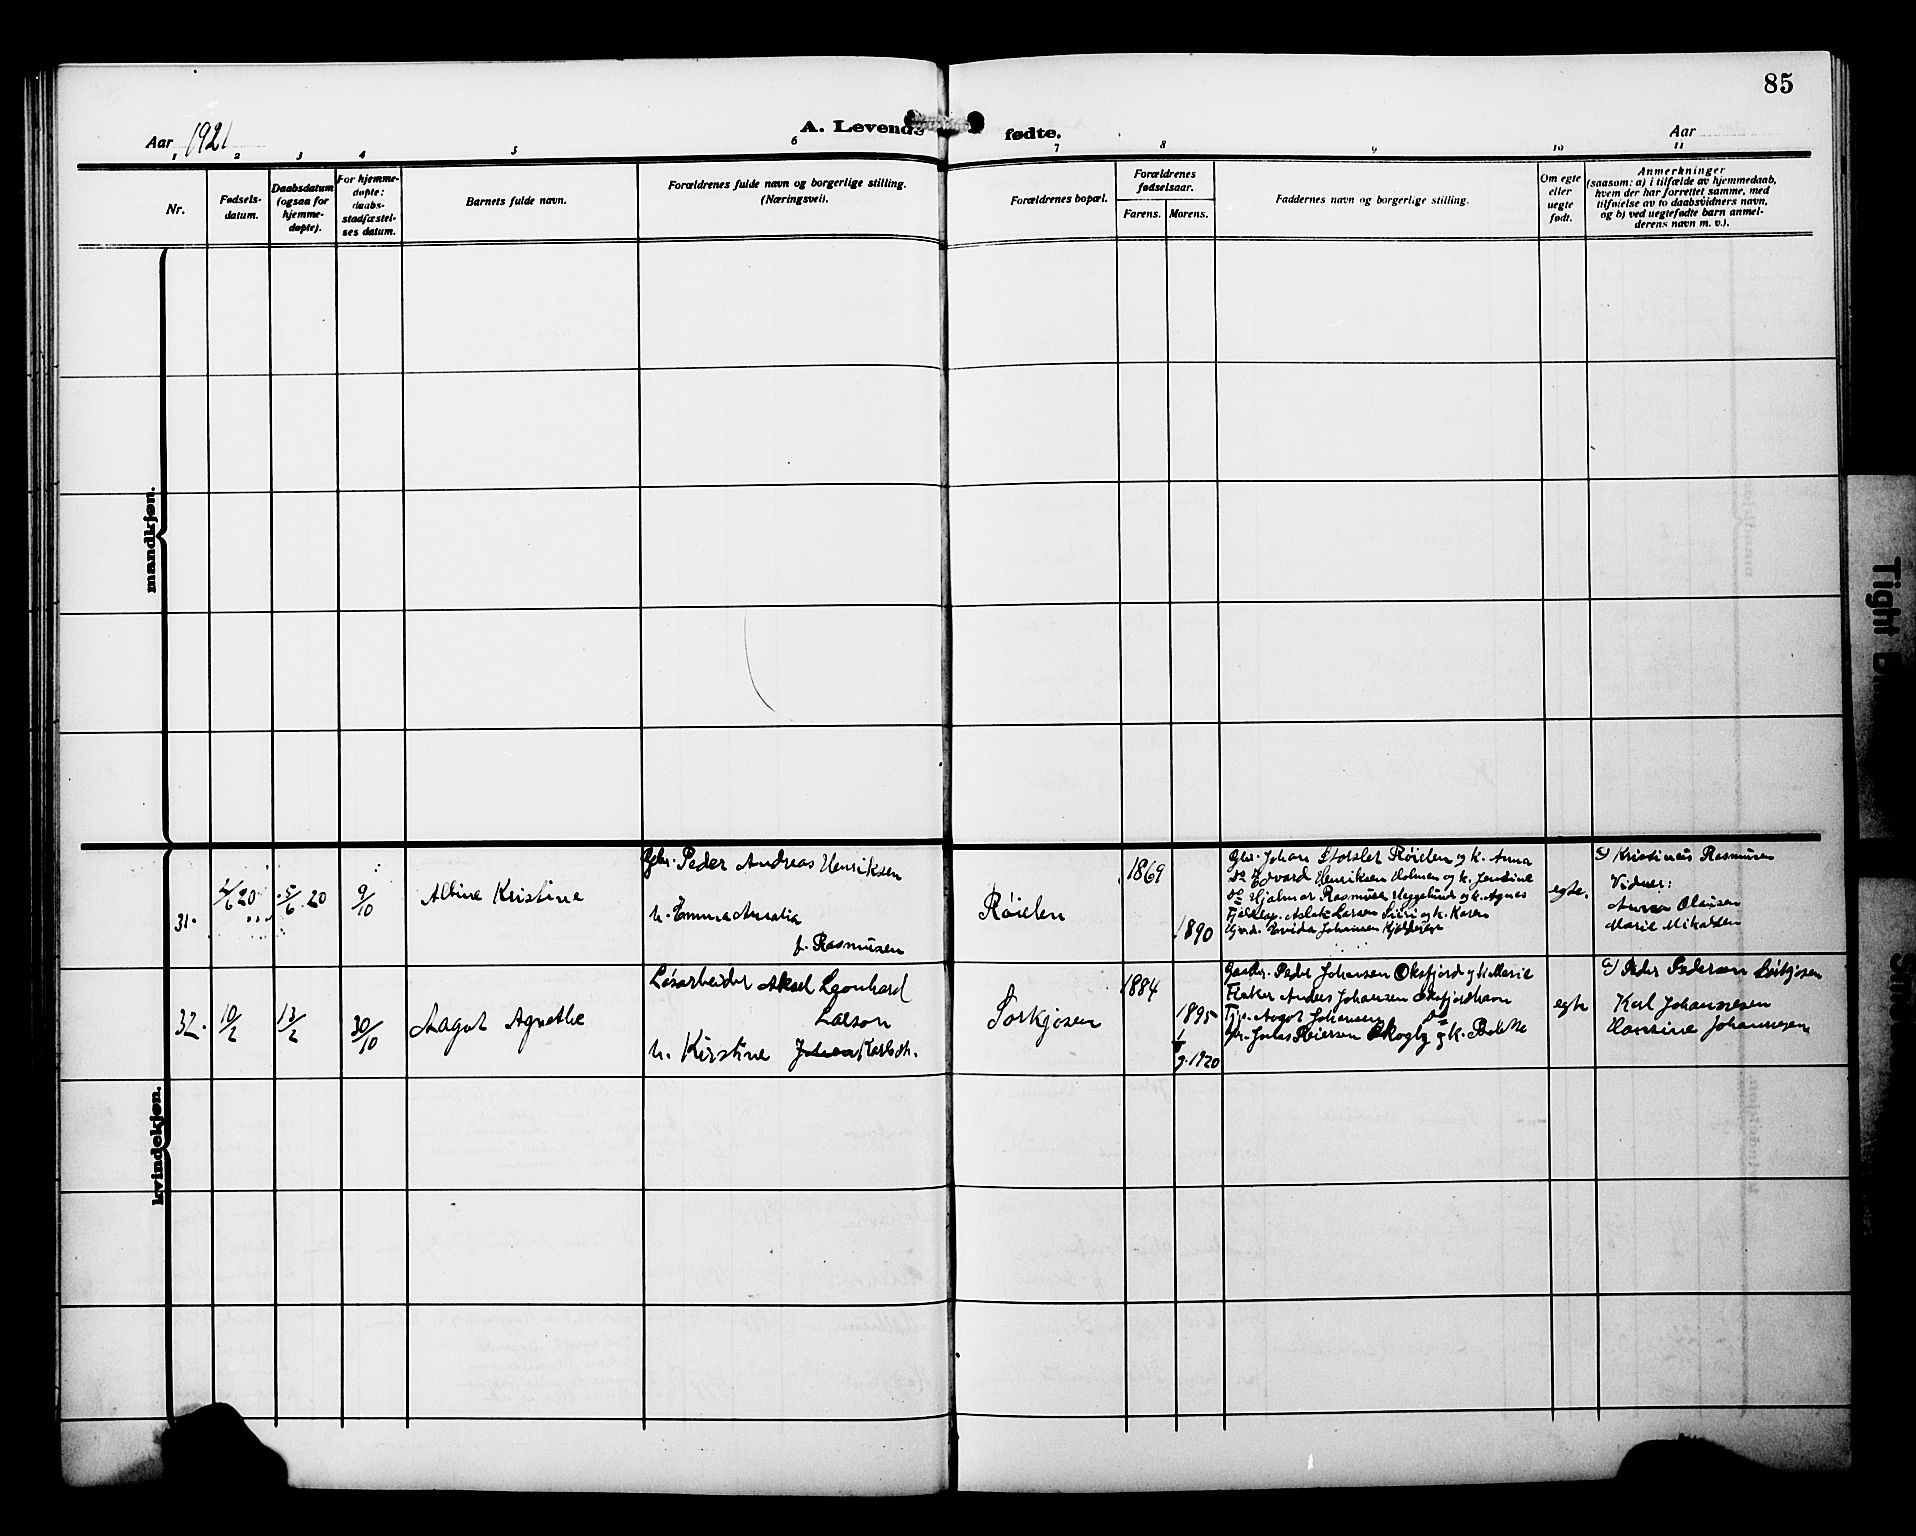 85
Aar 1921
A. Levende fødte.
Aar
1 2 3 4 5 6 7 8 9 10 11
Nr.
Fødsels-
datum.
Daabsdatum
(ogsaa for
hjemme-
døpte).
For hjemme-
døpte:
daabs-
stadfæstel-
ses datum.
Barnets fulde navn.
Forældrenes fulde navn og borgerlige stilling.
(Næringsvei).
Forældrenes bopæl.
Forældrenes
fødselsaar.
Farens. Morens.
Faddernes navn og borgerlige stilling.
Om egte
eller
uegte
født.
Anmerkninger
(saasom: a) i tilfælde av hjemmedaab,
hvem der har forrettet samme, med
tilføielse av to daabsvidners navn,
og b) ved uegtefødte barn anmel-
derens navn m. v.).
mandkjøn.
kvindekjøn.
31.
4/6 20
5/6 20
9/10
Albine Kristine
Gbr. Peder Andreas Henriksen
h. Emma Amalia
f. Rasmusen
Røielen
1869
1890
Gbr. Johan Storslet Røielen og k. Anna
Do Edvard Henriksen Holmen og k. Jensine
Do Hjalmar Rasmusen Heggelund og k. Agnes
Aslak Larsen og k. Karen
Johansen
egte.
a) Kristineus Rasmusen
Vidner:
Anna Olaisen
Marie Mikalsen
32.
10/2
13/2
30/10
Aagot Agnethe
Løsarbeider Aksel Leonhard
Larson
h. Kirstine Karlsdt.
Sørkjosen
1884
1895
g. 1920
Gaardbr. Peder Johansen Oksfjord og k. Marie
Fisker Anders Johansen Oksfjordhavn
Tj. Aagot Johansen Do
Gbr. Johs Reiersen Skogly og k. Bolette
egte
a) Peder Pedersen Sørkjosen
Karl Johannesen
Hansine Johannesen
Tight